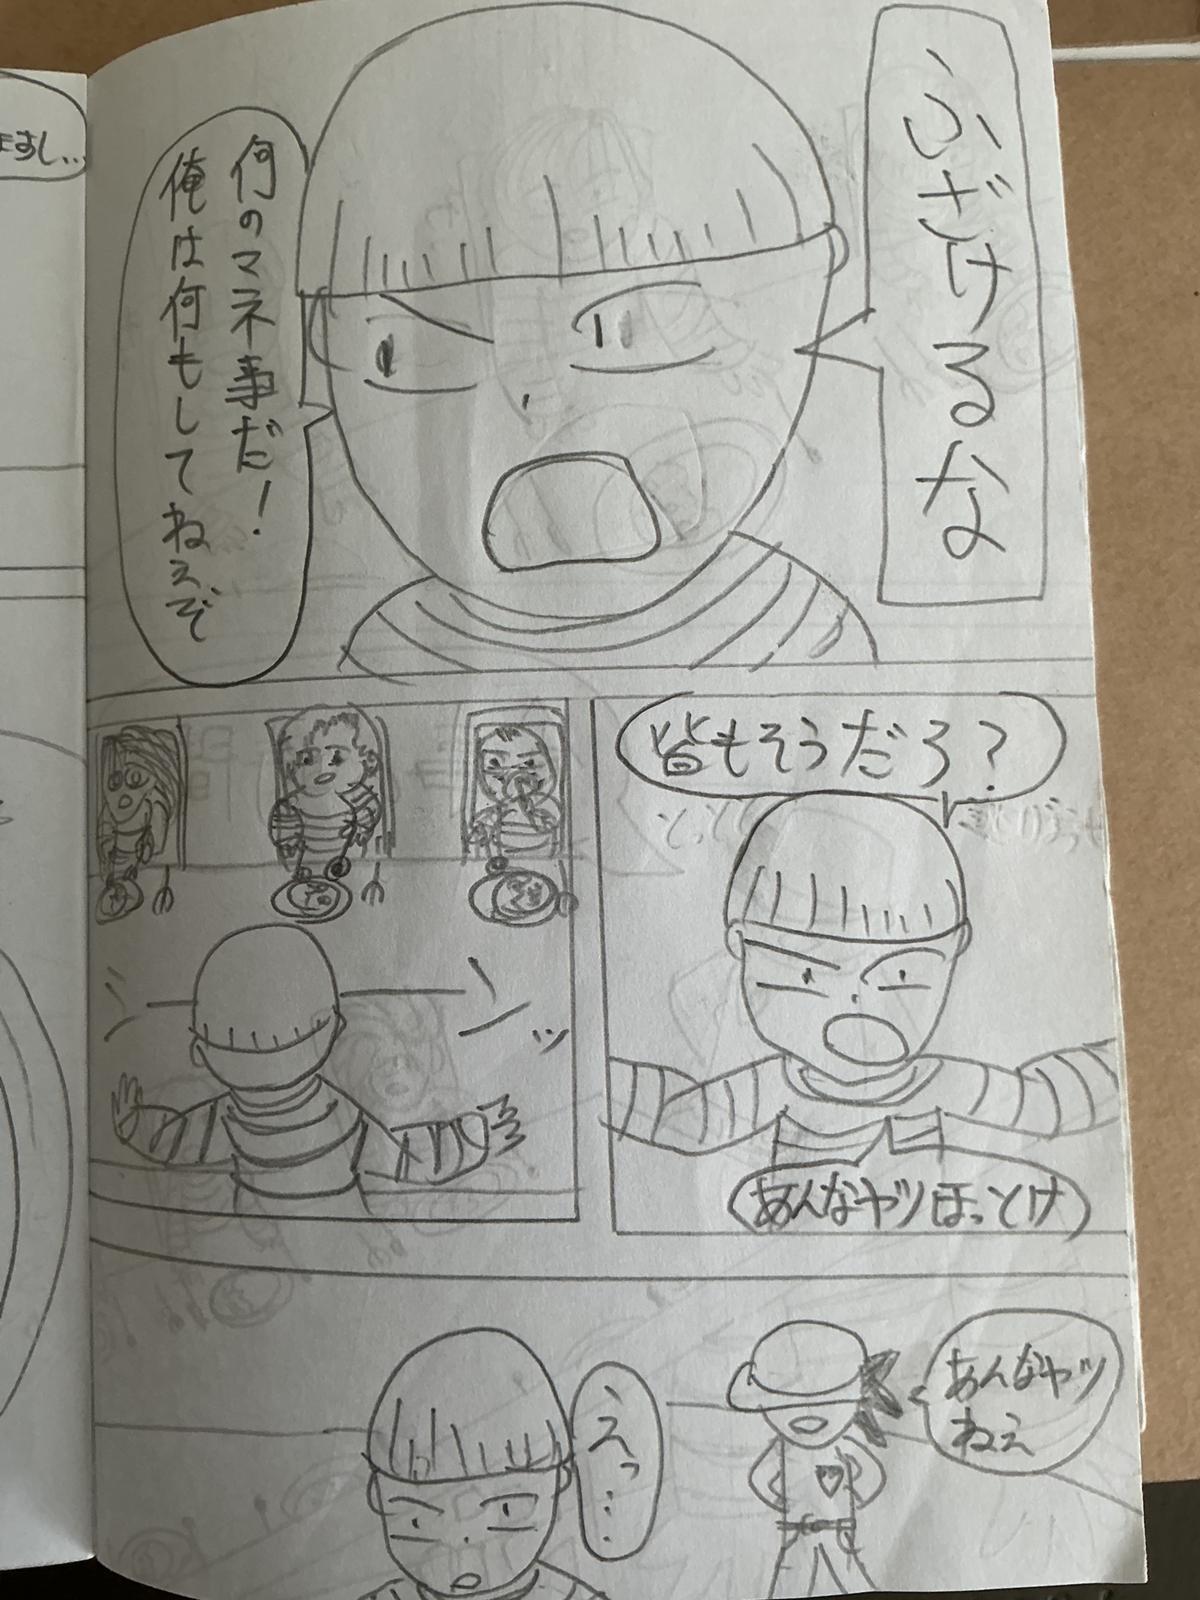 ふざけるな
何のマネ事だ!
俺は何もしてねえぞ
皆もそうだろ?
あんなヤツほっとけ
シンッ
あんなヤツ
ねえ
えっ…
ますし…